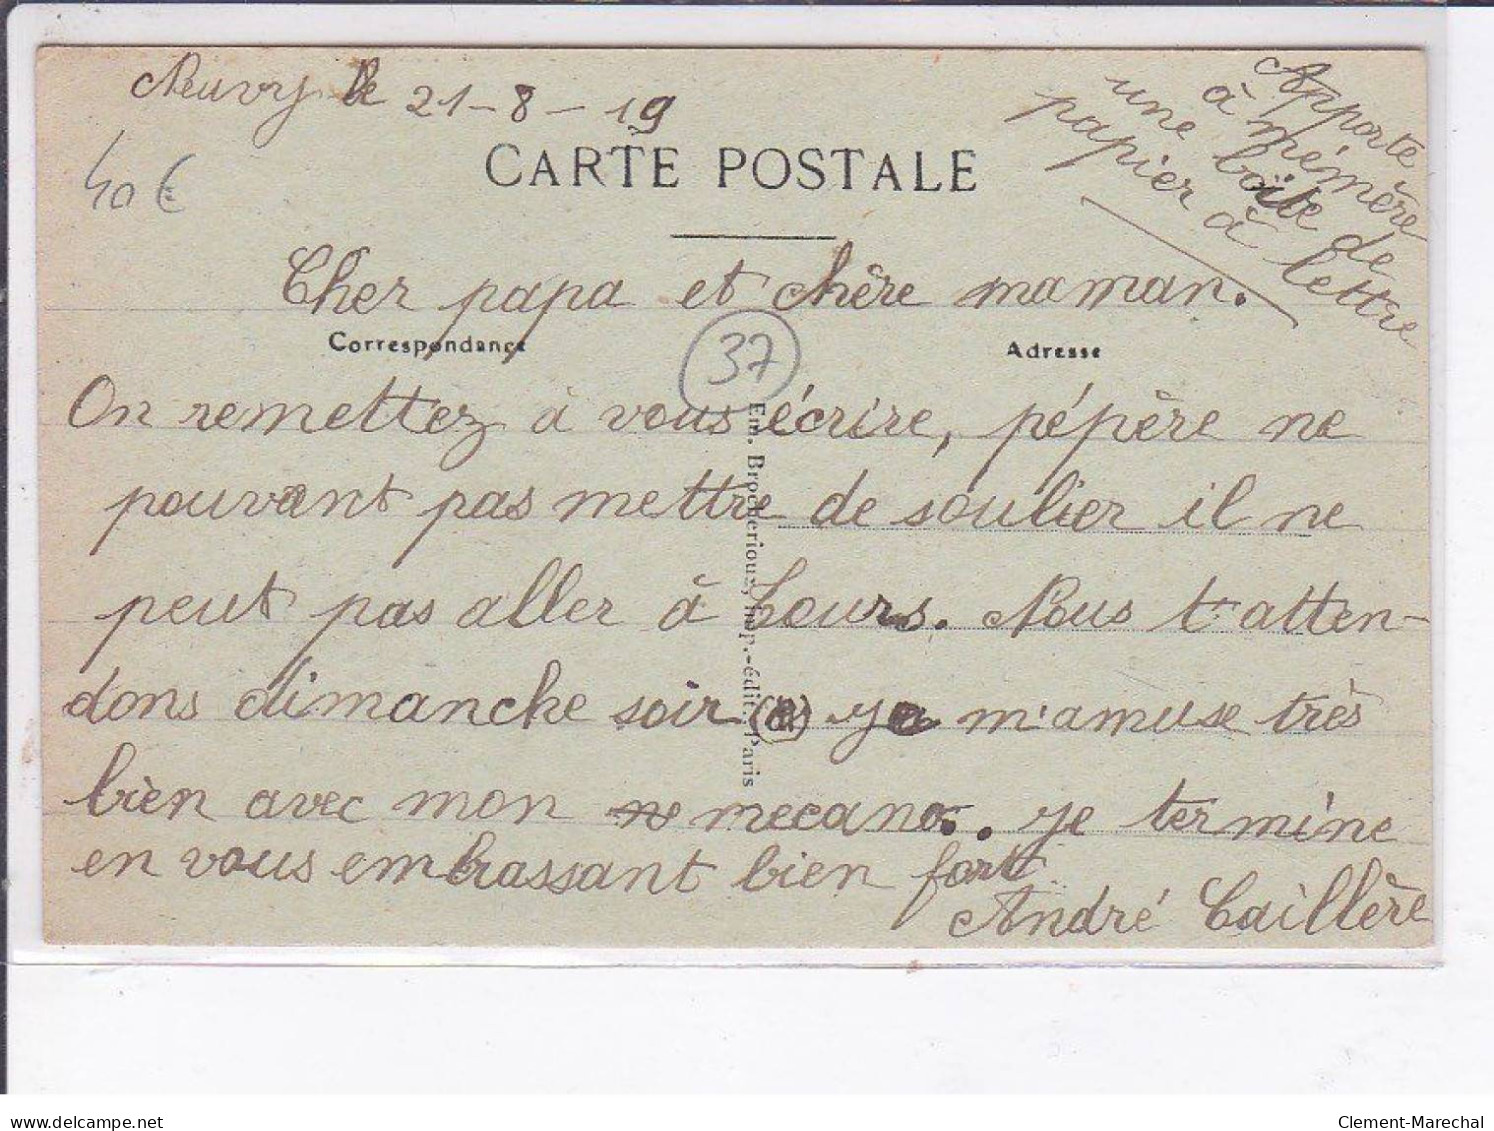 Neuvy le 21-8-19
Apporte
à mémère
une boîte de
papier à lettre
40 €
CARTE POSTALE
Cher papa et chère maman.
Correspondance
37
Adresse
On remettez à vous écrire, pépère ne
pouvant pas mettre de soulier il ne
peut pas aller à Tours. Nous t'atten-
dons dimanche soir je m'amuse très
bien avec mon mecano. je termine
en vous embrassant bien fort
André Caillère
Em. Brocherioux, imp.-édit., Paris
delcampe.net
Clement-Marechal